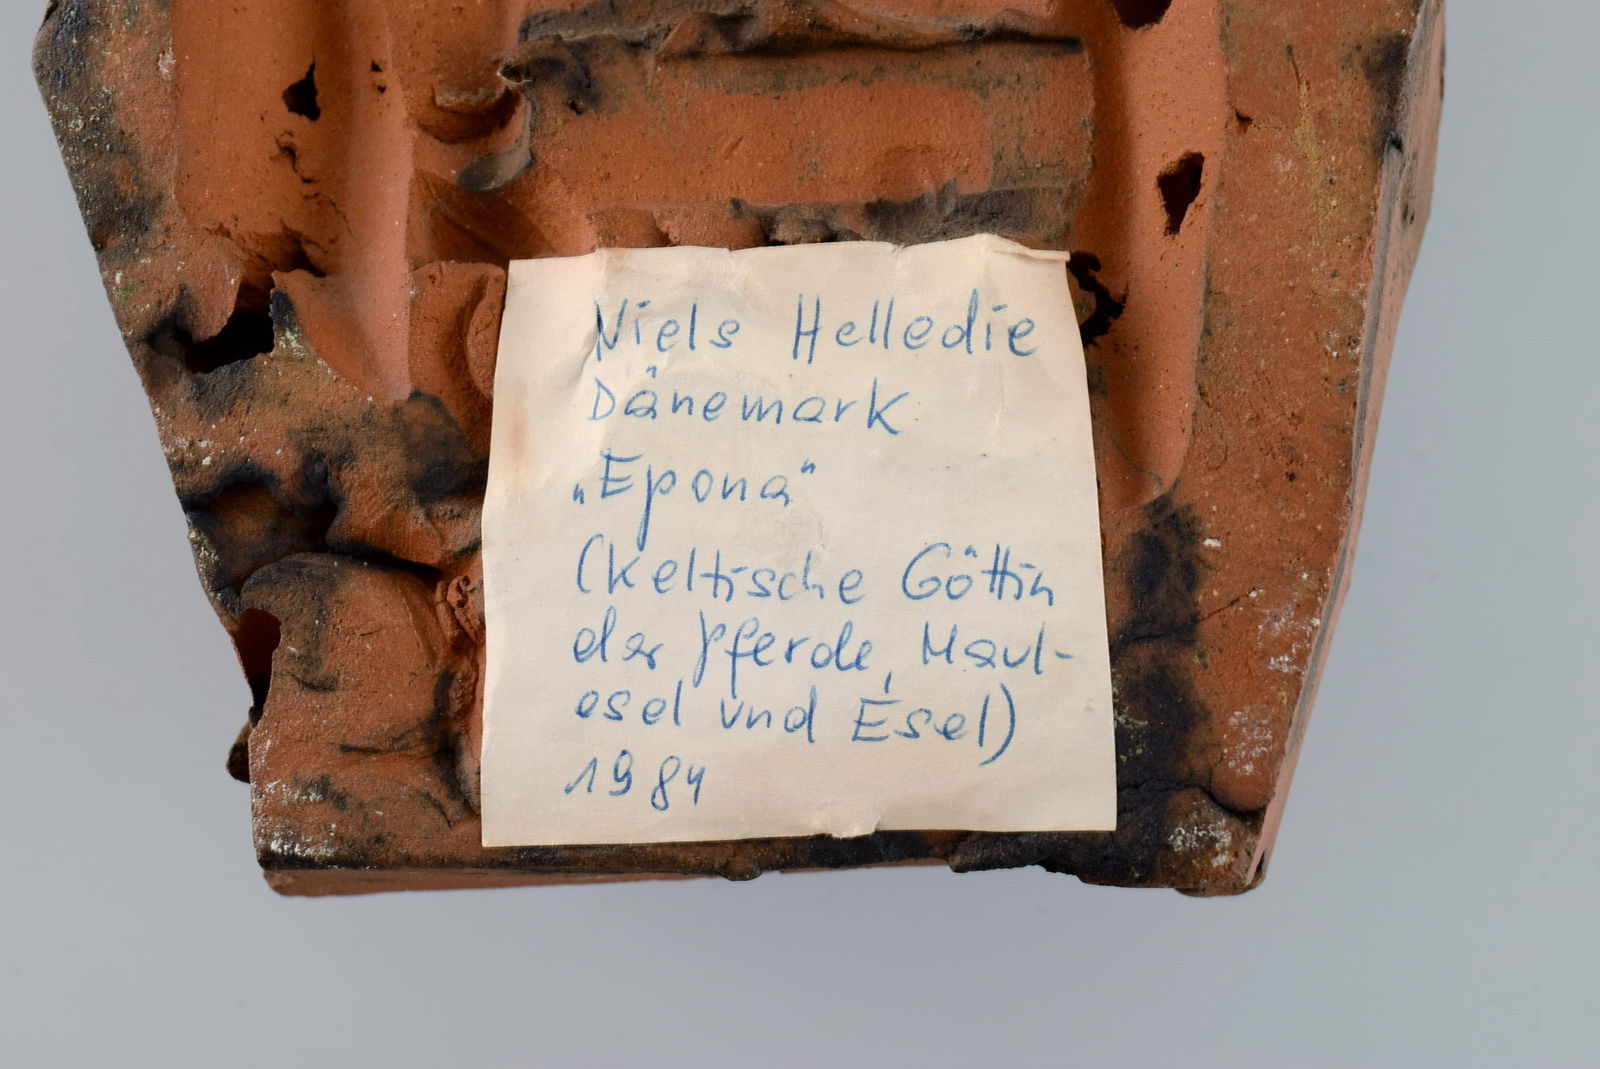 Niels Helledie
Dänemark
„Epona“
(keltische Göttin
der Pferde, Maul-
esel und Esel)
1984